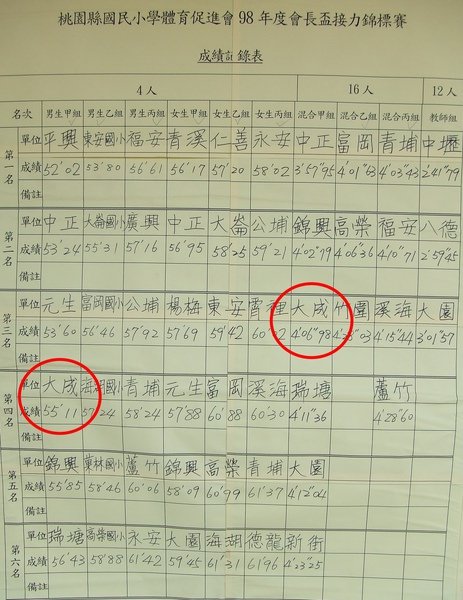 桃園縣國民小學體育促進會98年度會長盃接力錦標賽
成績記錄表
4人 16人 12人
名次 男生甲組 男生乙組 男生丙組 女生甲組 女生乙組 女生丙組 混合甲組 混合乙組 混合丙組 教師組
第一名 單位 平興 東安國小 福安 青溪 仁善 永安 中正 富岡 青埔 中壢
成績 52"02 53"80 56"61 56"17 57"20 58"02 3'57"95 4'01"63 4'03"43 2'41"79
備註
第二名 單位 中正 大崙國小 廣興 中正 大崙 公埔 錦興 高榮 福安 八德
成績 53"24 55"31 57"16 56"95 58"25 59"21 4'02"19 4'06"36 4'10"71 2'59"45
備註
第三名 單位 元生 富岡國小 公埔 楊梅 東安 霄裡 大成 竹圍 溪海 大園
成績 53"60 56"46 57"92 57"69 59"42 4'06"98 4'15"44 3'01"57
備註
第四名 單位 大成 青埔 元生 富岡 溪海 瑞塘 蘆竹
成績 55"11 58"24 57"88 60"88 60"30 4'11"36 4'28"60
備註
第五名 單位 錦興 蘆竹 錦興 高榮 青埔 大園
成績 55"85 58"46 60"06 58"09 60"99 61"37 4'12"04
備註
第六名 單位 瑞塘 高榮國小 永安 大園 海湖 德龍 新街
成績 56"43 58"88 61"42 59"45 61"31 61"96 4'23"25
備註